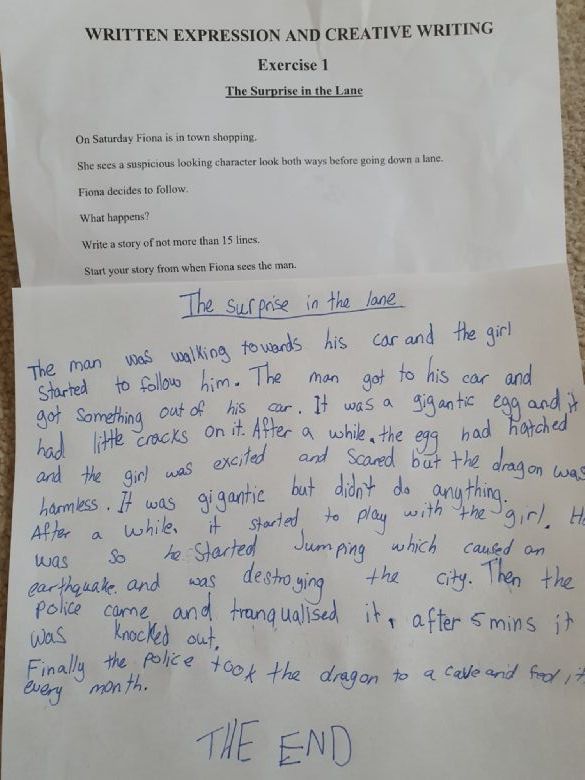 WRITTEN EXPRESSION AND CREATIVE WRITING
Exercise 1
The Surprise in the Lane
On Saturday Fiona is in town shopping.
She sees a suspicious looking character look both ways before going down a lane.
Fiona decides to follow.
What happens?
Write a story of not more than 15 lines.
Start your story from when Fiona sees the man.
The surprise in the lane
The man was walking towards his car and the girl
Started to follow him. The man got to his car and
got Something out of his car. It was a gigantic egg and it
had little cracks on it. After a while, the egg had hatched
and the girl was excited and Scared but the dragon was
harmless. It was gigantic but didn't do anything.
After a while, it started to play with the girl. He
was so he Started Jumping which caused an
earthquake and was destroying the city. Then the
police came and tranqualised it, after 5 mins it
was knocked out.
Finally the police took the dragon to a cave and it
every month.
THE END